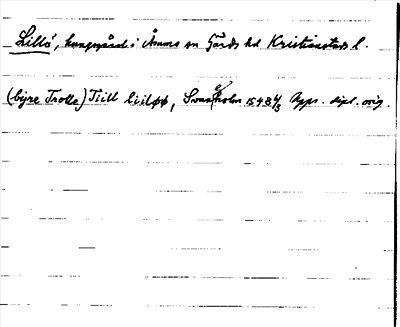 Lillö, kungsgård i Åhus sn Gärds hd Kristianstads l.
(björe Trolle) Till Liiløø, Svaneholm 1543 4/3 Upps. dipl. orig.